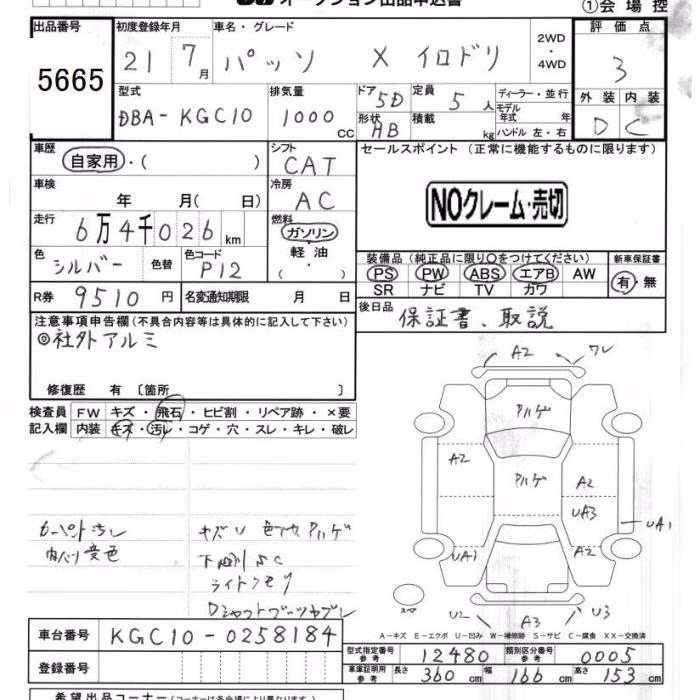 オークション出品申込書
①会場控
出品番号 初度登録年月 車名・グレード 2WD ・ 4WD 評価点
5665 21 7月 パッソ X イロドリ 3
型式 排気量 ドア 5D 定員 5人 ディーラー・並行 外装 内装
DBA-KGC10 1000cc 形状 HB 積載 kg モデル年式 年 ハンドル 左・右 D C
車歴 自家用・( ) シフト CAT セールスポイント (正常に機能するものに限ります)
車検 年 月( 日) 冷房 AC
NOクレーム・売切
走行 6万4千026km 燃料 ガソリン 軽油 ・( )
色 シルバー 色替 色コード P12
装備品 (純正品に限り○をつけてください) 新車保証書
PS PW ABS エアB AW 有・無
SR ナビ TV カワ
R券 9510円 名変通知期限 月 日
後日品 保証書、取説
注意事項申告欄(不具合内容等は具体的に記入して下さい)
◎社外アルミ
修復歴 有〔箇所 〕
検査員 FW キズ・飛石・ヒビ割・リペア跡・×要
記入欄 内装 キズ・汚レ・コゲ・穴・スレ・キレ・破レ
カーペット汚レ
内ハリ変色
キズU 色アセ アハゲ
ライトクモリ
Dシャフトブーツヤブレ
A2 ワレ
アハゲ
A2 アハゲ A2
UA3
UA1
UA1 A2
スペア
U2 A3 U3
A-キズ E-エクボ U-凹み W-補修跡 S-サビ C-腐食 XX-交換済
車台番号 KGC10-0258184
型式指定番号 参考 12480 類別区分番号 参考 0005
登録番号
車庫証明用 参考 長さ 360cm 幅 166cm 高さ 153cm
希望出品コーナー(コーナーは各会場により異なります)